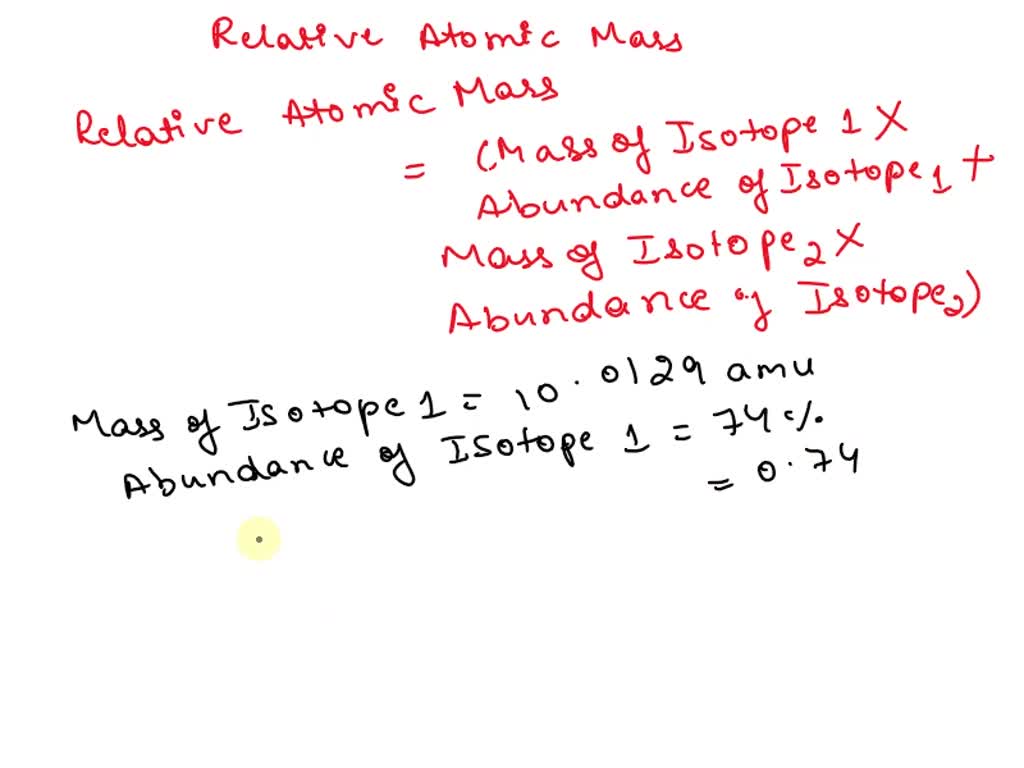 Relative Atomic Mass
Relative Atomic Mass
= (Mass of Isotope 1 X
Abundance of Isotope1 +
Mass of Isotope2 X
Abundance of Isotope2)
Mass of Isotope 1 = 10.0129 amu
Abundance of Isotope 1 = 74%
= 0.74